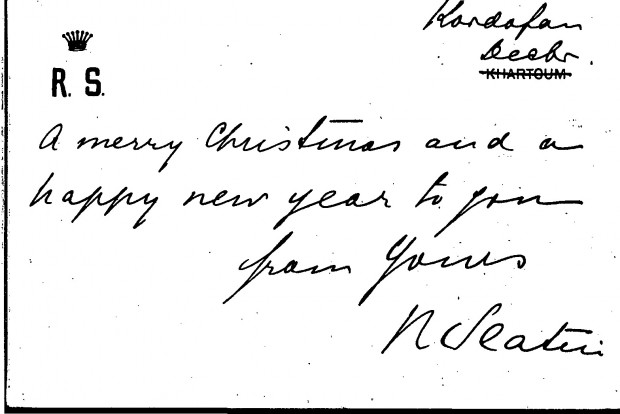 Kordofan
Decbr.
KHARTOUM
R. S.
A merry Christmas and a
happy new year to you
from Yours
R Slatin